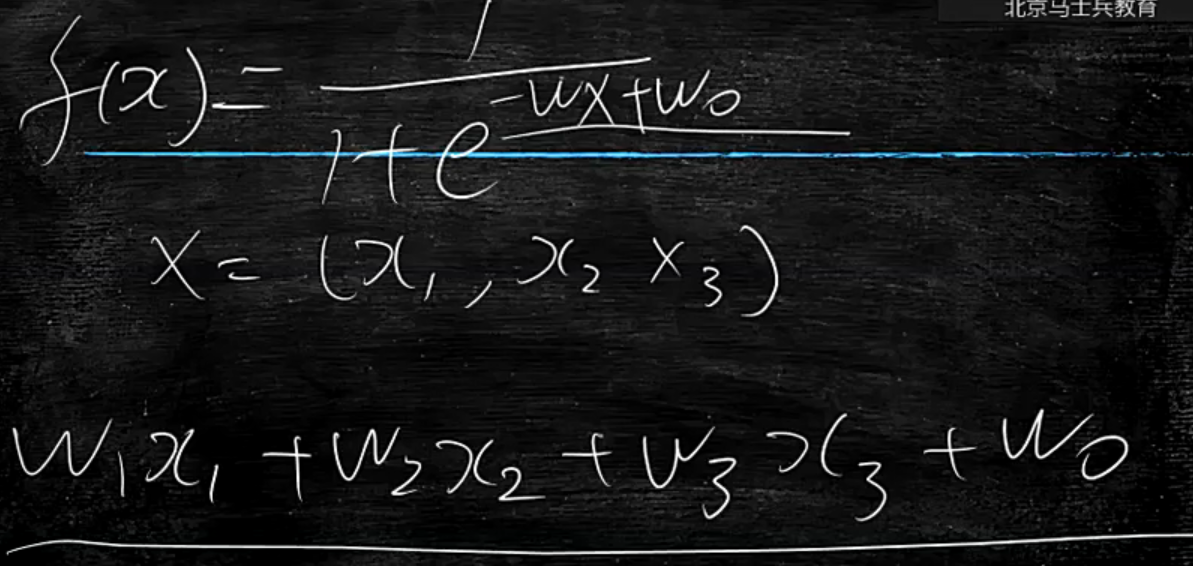 北京马士兵教育
f(x) = 1 / (1 + e^(-wx+w₀))
X = (x₁, x₂ x₃)
w₁x₁ + w₂x₂ + w₃x₃ + w₀